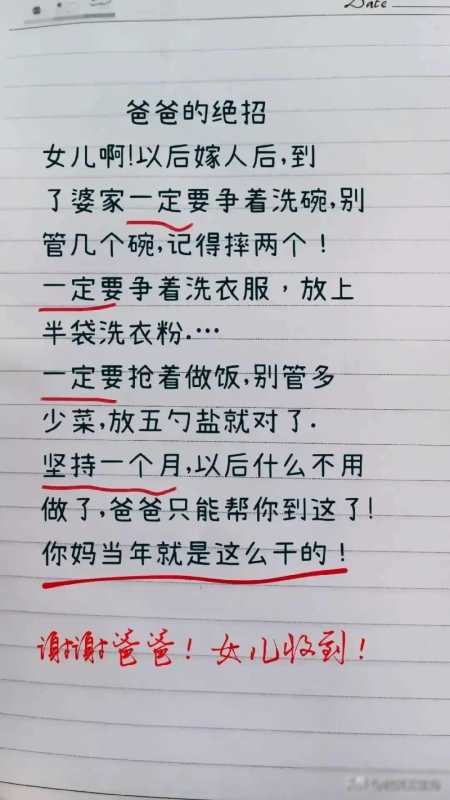 Date
爸爸的绝招
女儿啊!以后嫁人后,到
了婆家一定要争着洗碗,别
管几个碗,记得摔两个!
一定要争着洗衣服,放上
半袋洗衣粉.…
一定要抢着做饭,别管多
少菜,放五勺盐就对了.
坚持一个月,以后什么不用
做了,爸爸只能帮你到这了!
你妈当年就是这么干的!
谢谢爸爸!女儿收到!